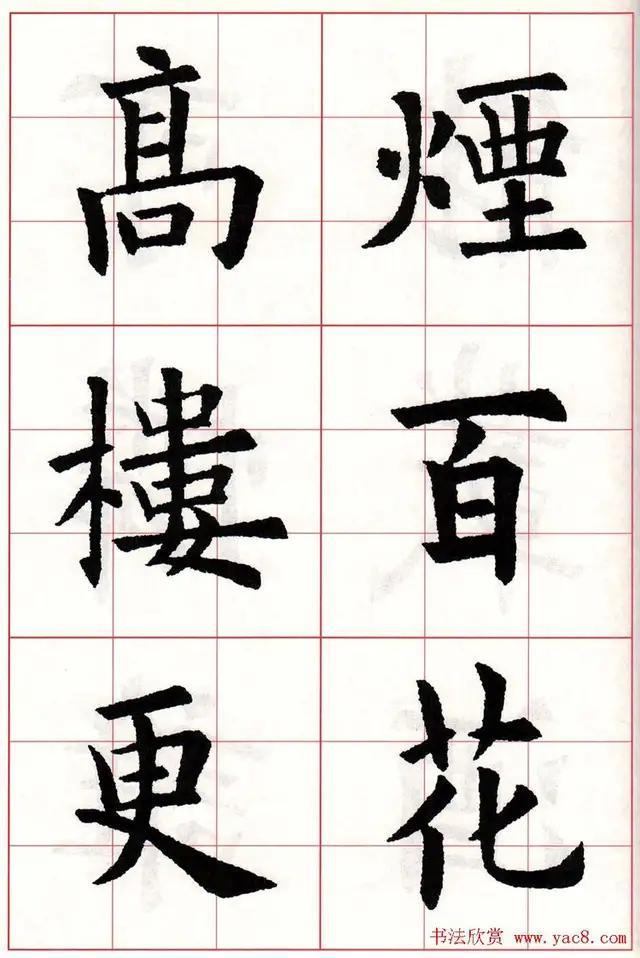 煙百花
髙樓更
书法欣赏 www.yac8.com